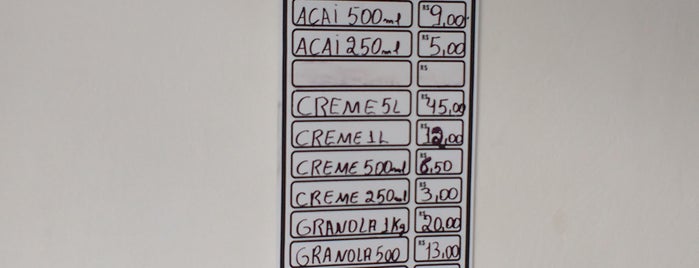 AÇAÍ 500ml R$ 9,00
AÇAÍ 250ml R$ 5,00
R$
CREME 5L R$ 45,00
CREME 1L R$ 12,00
CREME 500ml R$ 6,50
CREME 250ml R$ 3,00
GRANOLA 1Kg R$ 20,00
GRANOLA 500 R$ 13,00